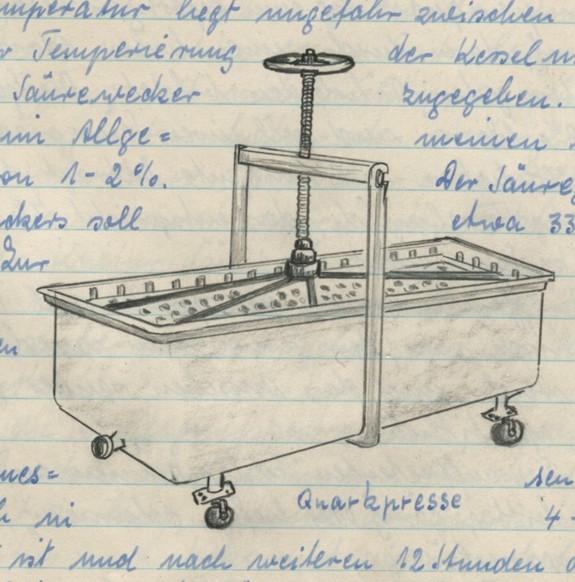 mperatur liegt ungefähr zwischen
r Temperierung der Kesel m
Säurewecker zugegeben.
im Allge= meinen
on 1-2%. Der Säure
ckers soll etwa 33
Zur
en
ues= sen
h in 4-
ist und nach weiteren 12 Stunden
Quarkpresse